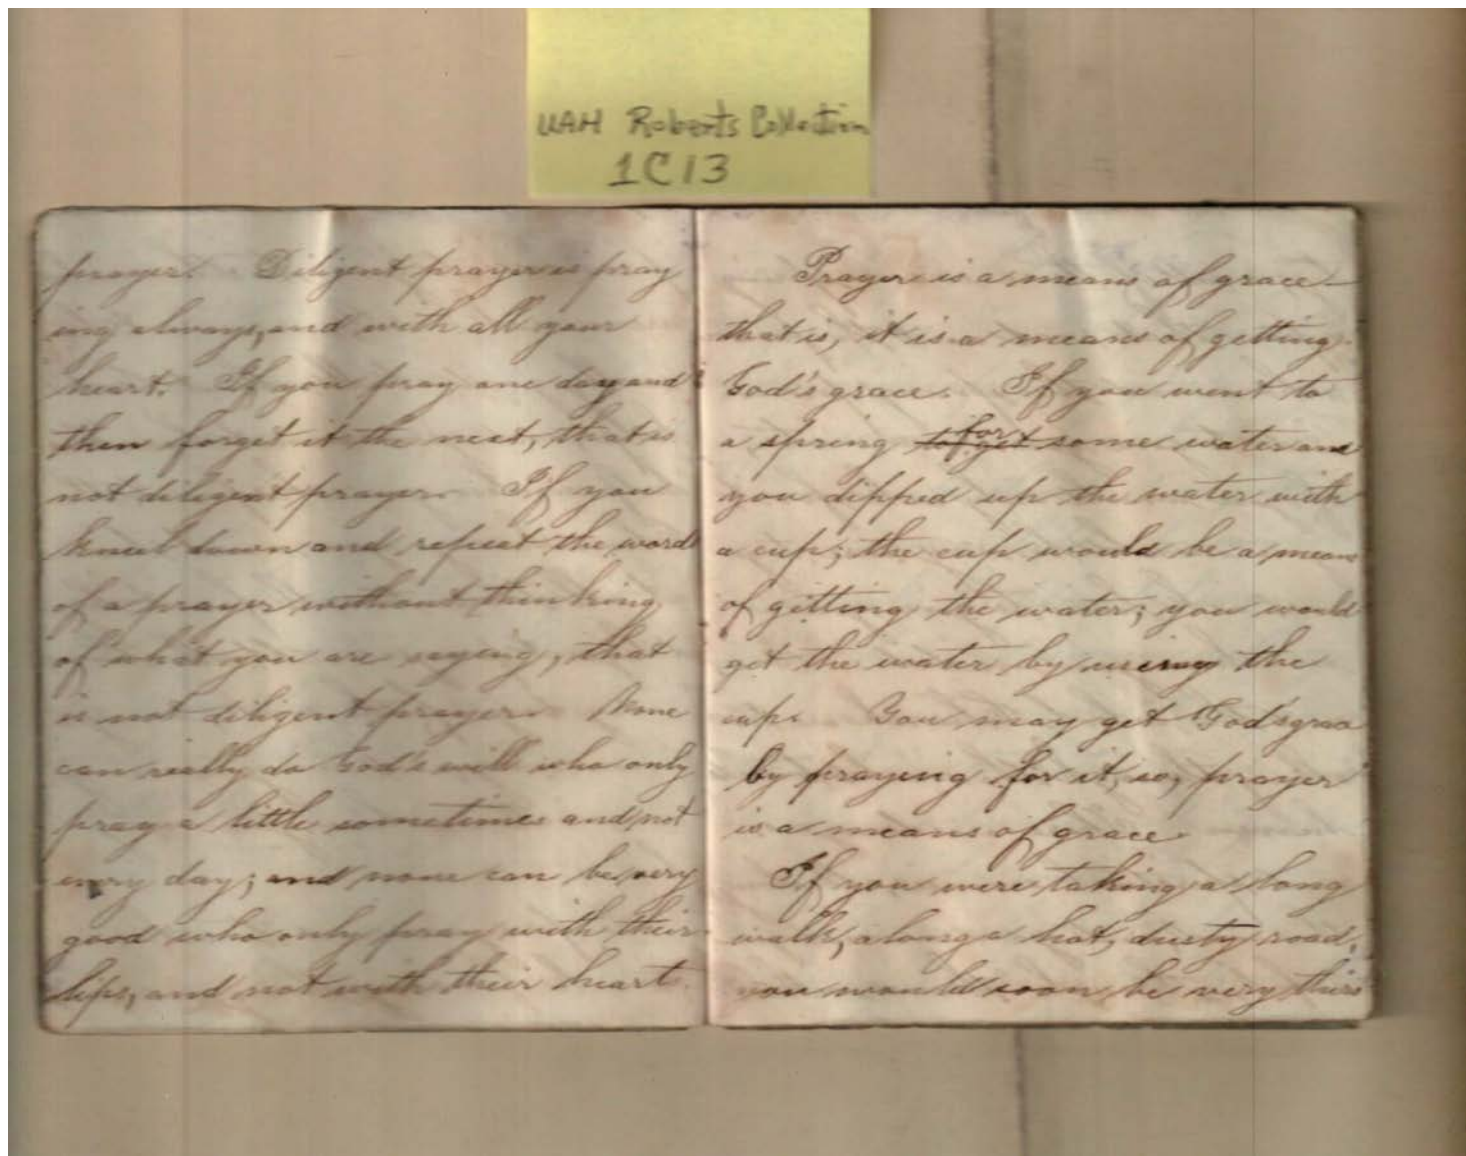 UAH Roberts Collection
1C13
prayer. Diligent prayer is pray
ing always, and with all your
heart. If you pray one day and
then forget it the next, that is
not diligent prayer. If you
kneel down and repeat the words
of a prayer without thinking
of what you are saying, that
is not diligent prayer. None
can really do God's will who only
pray a little sometimes and not
every day; and none can be very
good who only pray with their
lips, and not with their heart.
Prayer is a means of grace—
that is, it is a means of getting
God's grace. If you went to
a spring to get for some water and
you dipped up the water with
a cup; the cup would be a means
of gitting the water; you would
get the water by using the
cup. You may get God's grace
by praying for it, so, prayer
is a means of grace
If you were taking a long
walk, along a hot, dusty road,
you would soon be very thirs